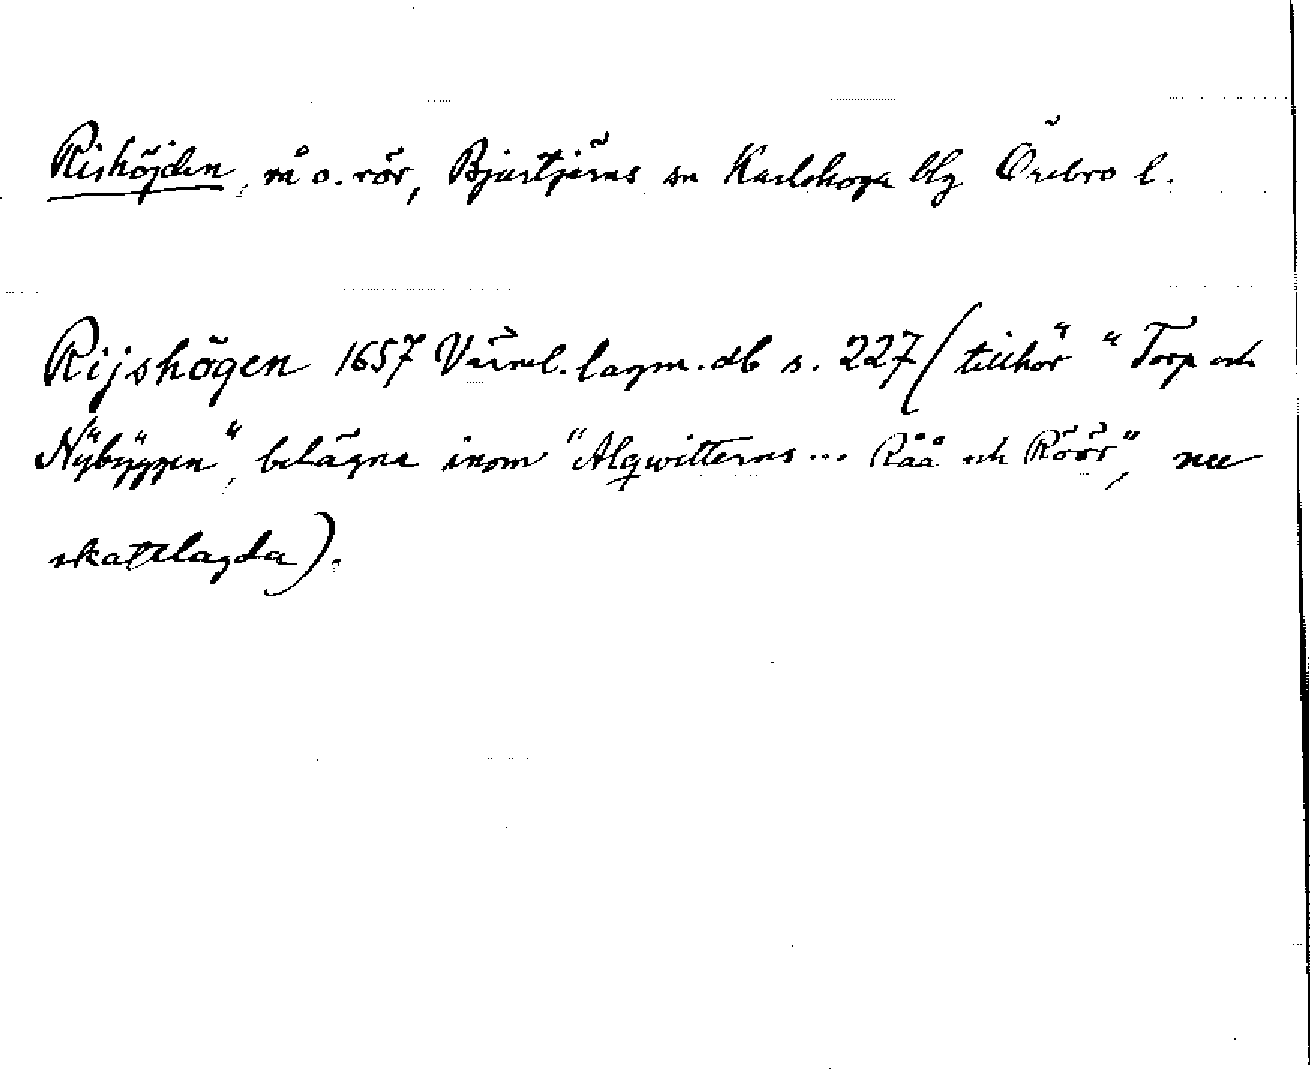 Rishöjden, rå o. rör, Bjurtjärns sn Karlskoga bg Örebro l.
Rijshögen 1657 Värml. lagm. db s. 227 (tillhör "Torp och
Nÿbÿggen", belägna inom "Algwitterns ... Råå och Röör", nu
skattlagda).